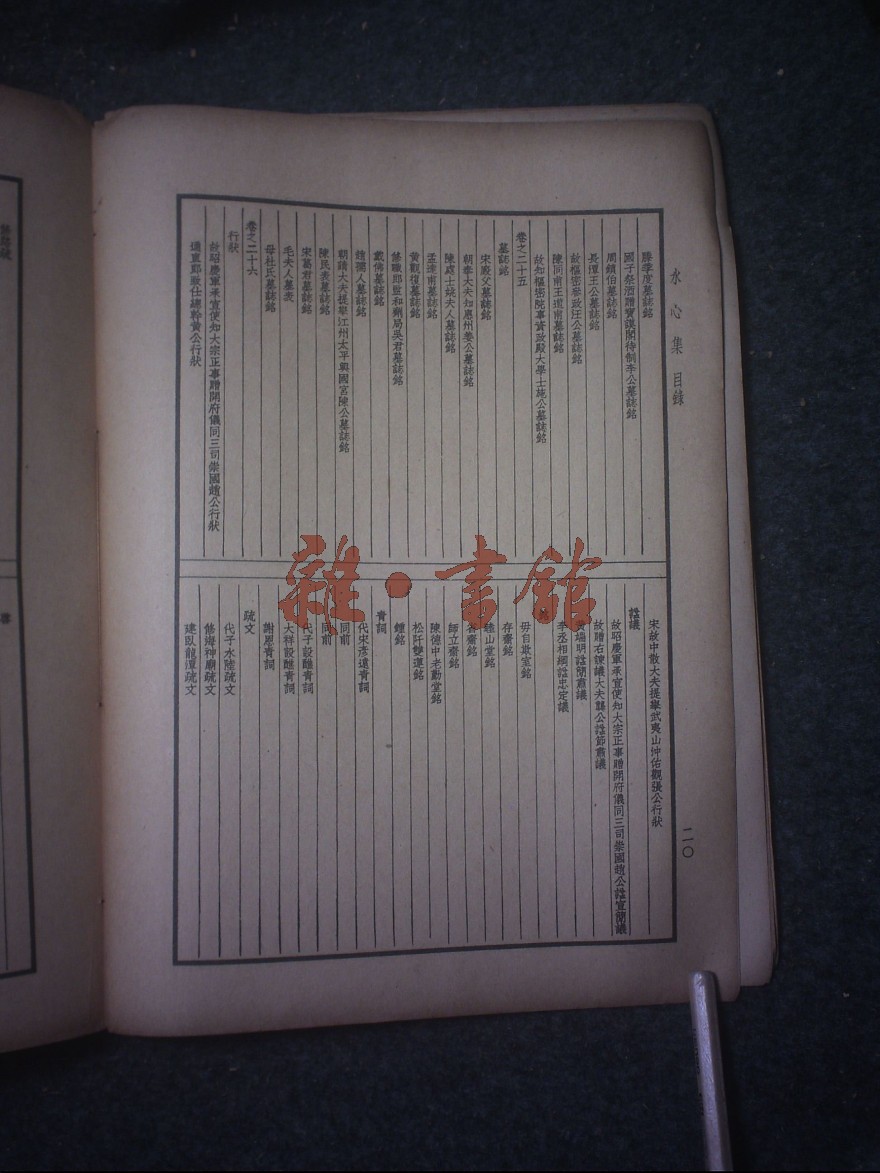 水心集 目錄
二〇
滕季度墓誌銘
國子祭酒贈寶謨閣待制李公墓誌銘
周鎮伯墓誌銘
長潭王公墓誌銘
故樞密參政汪公墓誌銘
陳同甫王道甫墓誌銘
故知樞密院事資政殿大學士施公墓誌銘
卷之二十五
墓誌銘
宋廄父墓誌銘
朝奉大夫知惠州姜公墓誌銘
陳處士姚夫人墓誌銘
孟達甫墓誌銘
黃觀復墓誌銘
修職郎監和劑局吳君墓誌銘
戴佛墓誌銘
鍾孺人墓誌銘
朝請大夫提舉江州太平興國宮陳公墓誌銘
陳民表墓誌銘
宋葛君墓誌銘
毛夫人墓表
母杜氏墓誌銘
卷之二十六
行狀
故昭慶軍承宣使知大宗正事贈開府儀同三司崇國趙公行狀
通直郎致仕總幹黃公行狀
宋故中散大夫提舉武夷山沖佑觀張公行狀
諡議
故昭慶軍承宣使知大宗正事贈開府儀同三司崇國趙公諡宣簡議
故贈右諫議大夫龔公諡節肅議
端明諡簡肅議
李丞相綱諡忠定議
毋自欺室銘
存齋銘
睦山堂銘
齋銘
師立齋銘
陳德中老勤堂銘
松阡雙蓮銘
鍾銘
青詞
代宋彥遠青詞
同前
同前
代子設醮青詞
大祥設醮青詞
謝恩青詞
疏文
代子水陸疏文
修路神廟疏文
建臥龍潭疏文
雜·書館